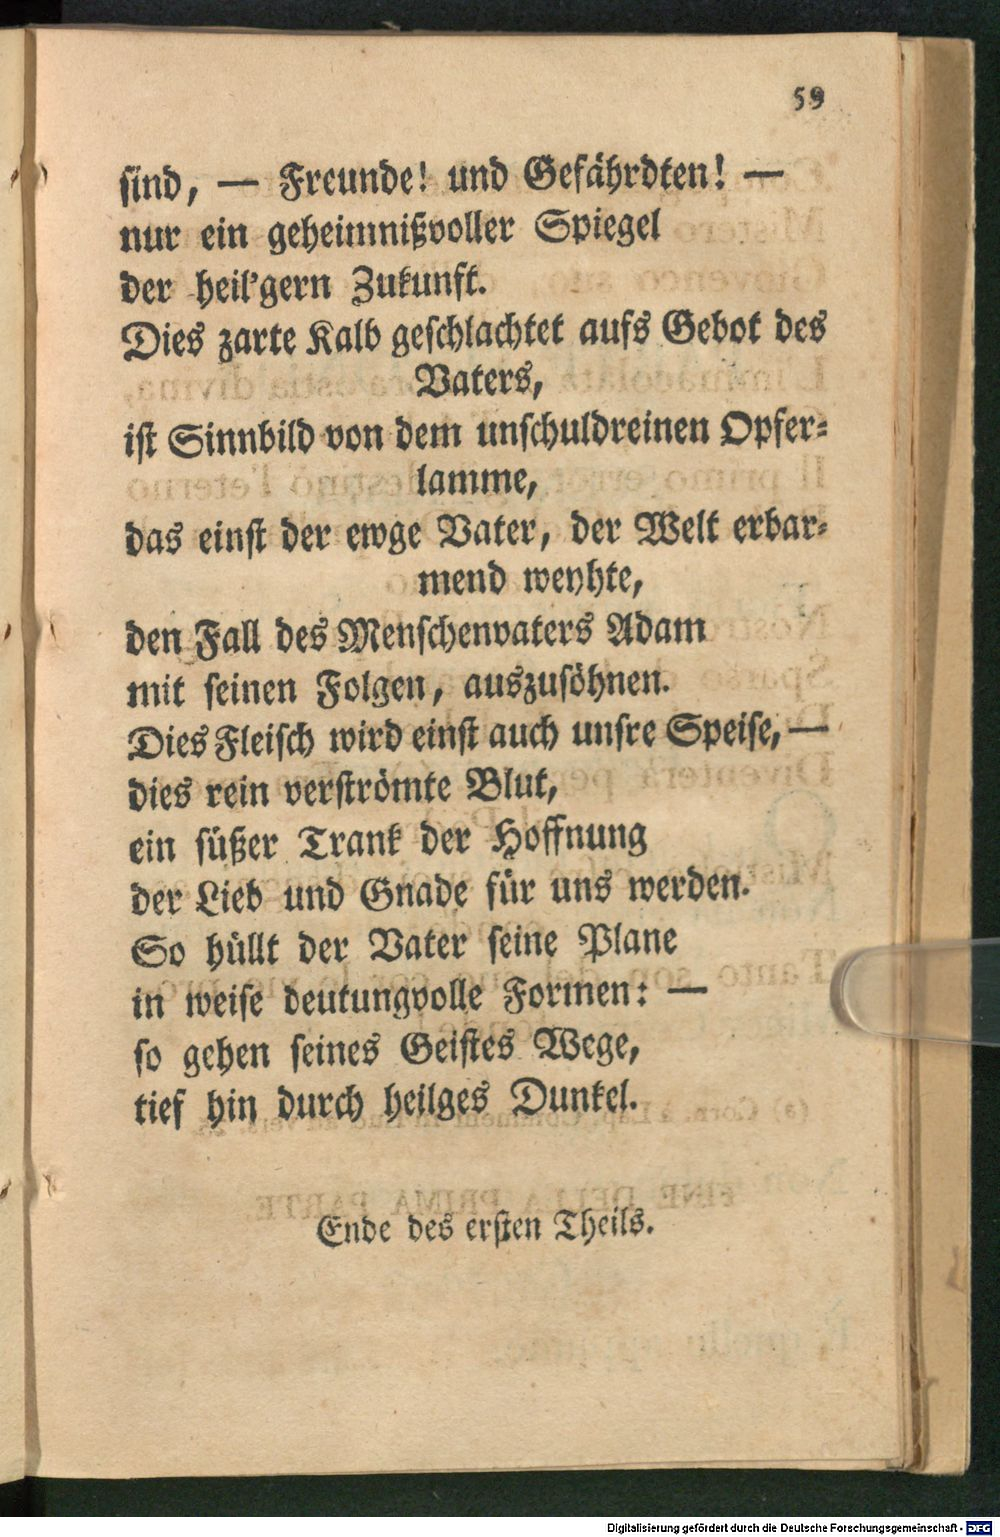 59
sind, — Freunde! und Gefährdten! —
nur ein geheimnißvoller Spiegel
der heil'gern Zukunft.
Dies zarte Kalb geschlachtet aufs Gebot des
Vaters,
ist Sinnbild von dem unschuldreinen Opfer-
lamme,
das einst der ewge Vater, der Welt erbar-
mend weyhte,
den Fall des Menschenvaters Adam
mit seinen Folgen, auszusöhnen.
Dies Fleisch wird einst auch unsre Speise, —
dies rein verströmte Blut,
ein süßer Trank der Hoffnung
der Lieb und Gnade für uns werden.
So hüllt der Vater seine Plane
in weise deutungvolle Formen: —
so gehen seines Geistes Wege,
tief hin durch heilges Dunkel.
Ende des ersten Theils.
Digitalisierung gefördert durch die Deutsche Forschungsgemeinschaft - DFG